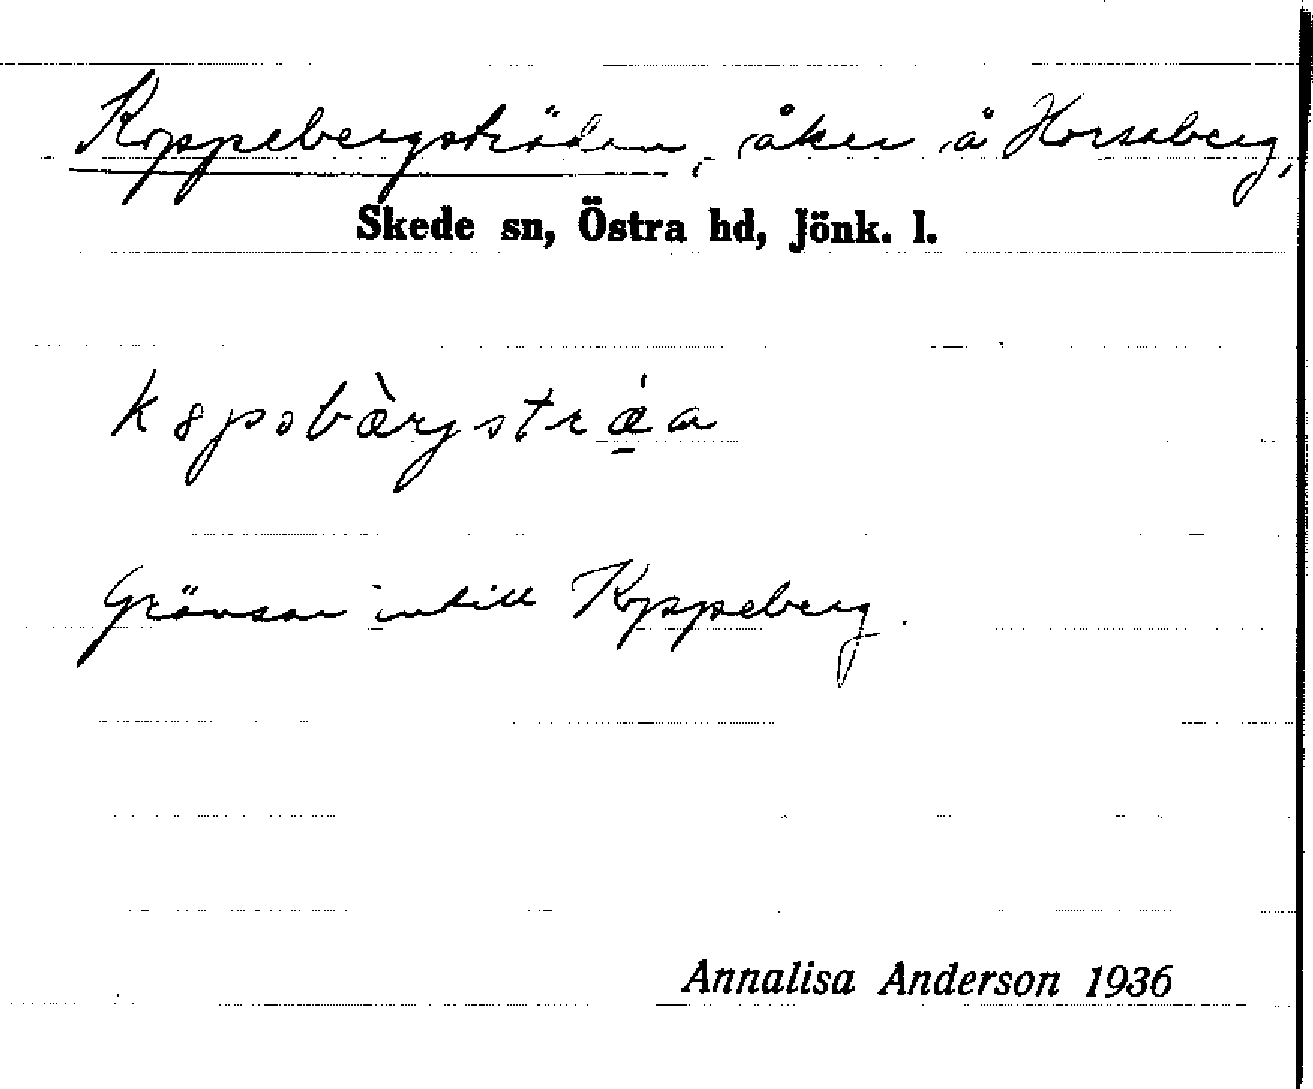 Koppebergsträden, åker å Horsaberg,
Skede sn, Östra hd, Jönk. l.
kopəbàrgstrǽa
Gränsar intill Koppeberg.
Annalisa Anderson 1936